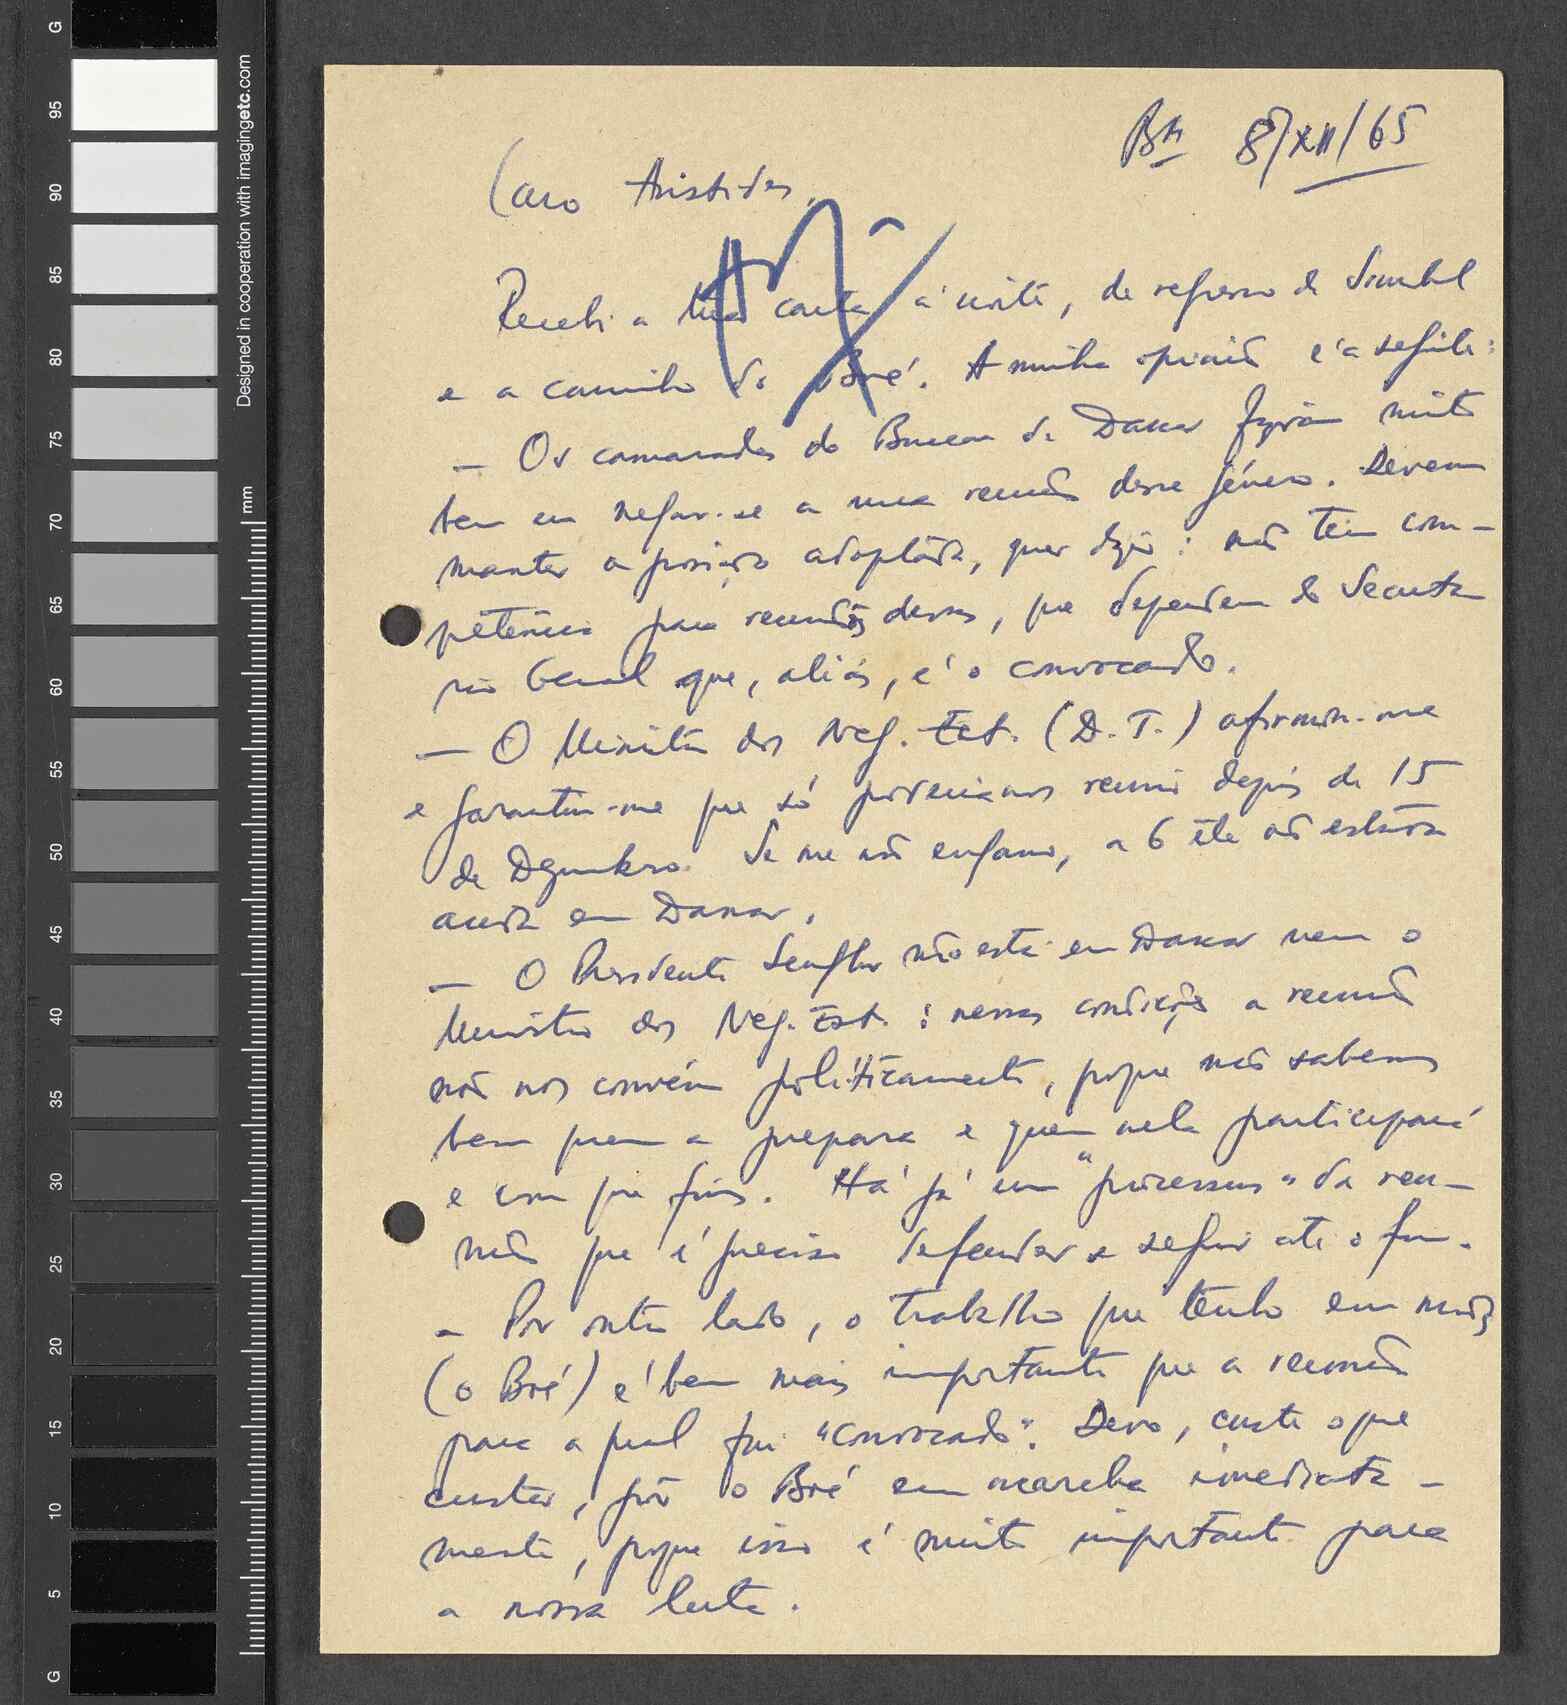 Bké 8/XII/65
Caro Aristides,
Recebi a tua carta à noite, de regresso de Sambel
e a caminho do Boé. A minha opinião é a seguinte:
— Os camaradas do Bureau de Dakar fizeram muito
bem em negar-se a uma reunião desse género. Devem
manter a posição adoptada, quer dizer: não têm com-
petência para reuniões dessas, que dependem do Secretá-
rio Geral que, aliás, é o convocado.
— O Ministro dos Neg. Est. (D. T.) afirmou-me
e garantiu-me que só poderíamos reunir depois de 15
de Dezembro. Se me não engano, a 6 êle não estava
ainda em Dakar.
— O Presidente Senghor não está em Dakar nem o
Ministro dos Neg. Est. : nessas condições a reunião
não nos convém políticamente, porque não sabemos
bem quem a prepara e quem nela participará
e com que fins. Há já um "processus" da reu-
nião que é preciso defender e seguir até o fim.
— Por outro lado, o trabalho que tenho em mãos
(o Boé) é bem mais importante que a reunião
para a qual fui "convocado". Devo, custe o que
custar, pôr o Boé em marcha imediata-
mente, porque isso é muito importante para
a nossa luta.
Designed in cooperation with imagingetc.com
mm
G
95
90
85
80
75
70
65
60
55
50
45
40
35
30
25
20
15
10
5
G